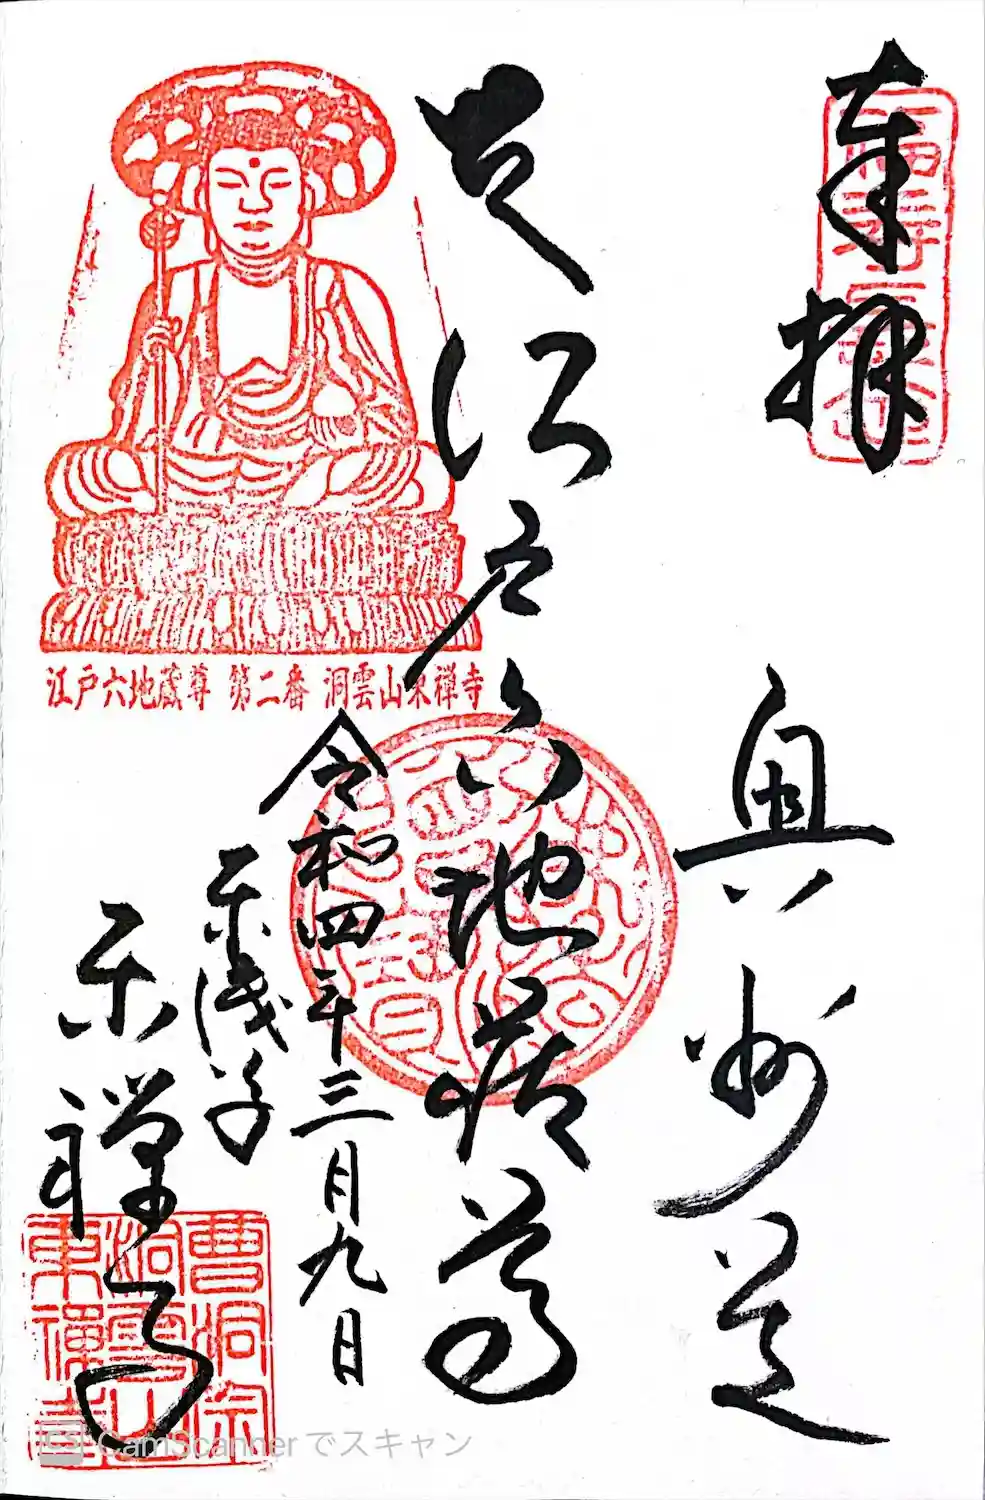 奉拝
奥州道
江戸六地蔵尊
令和四年三月九日
東浅草
東禅寺
江戸六地蔵尊 第二番 洞雲山東禅寺
曹洞宗
洞雲山
東禅寺
CS CamScannerでスキャン